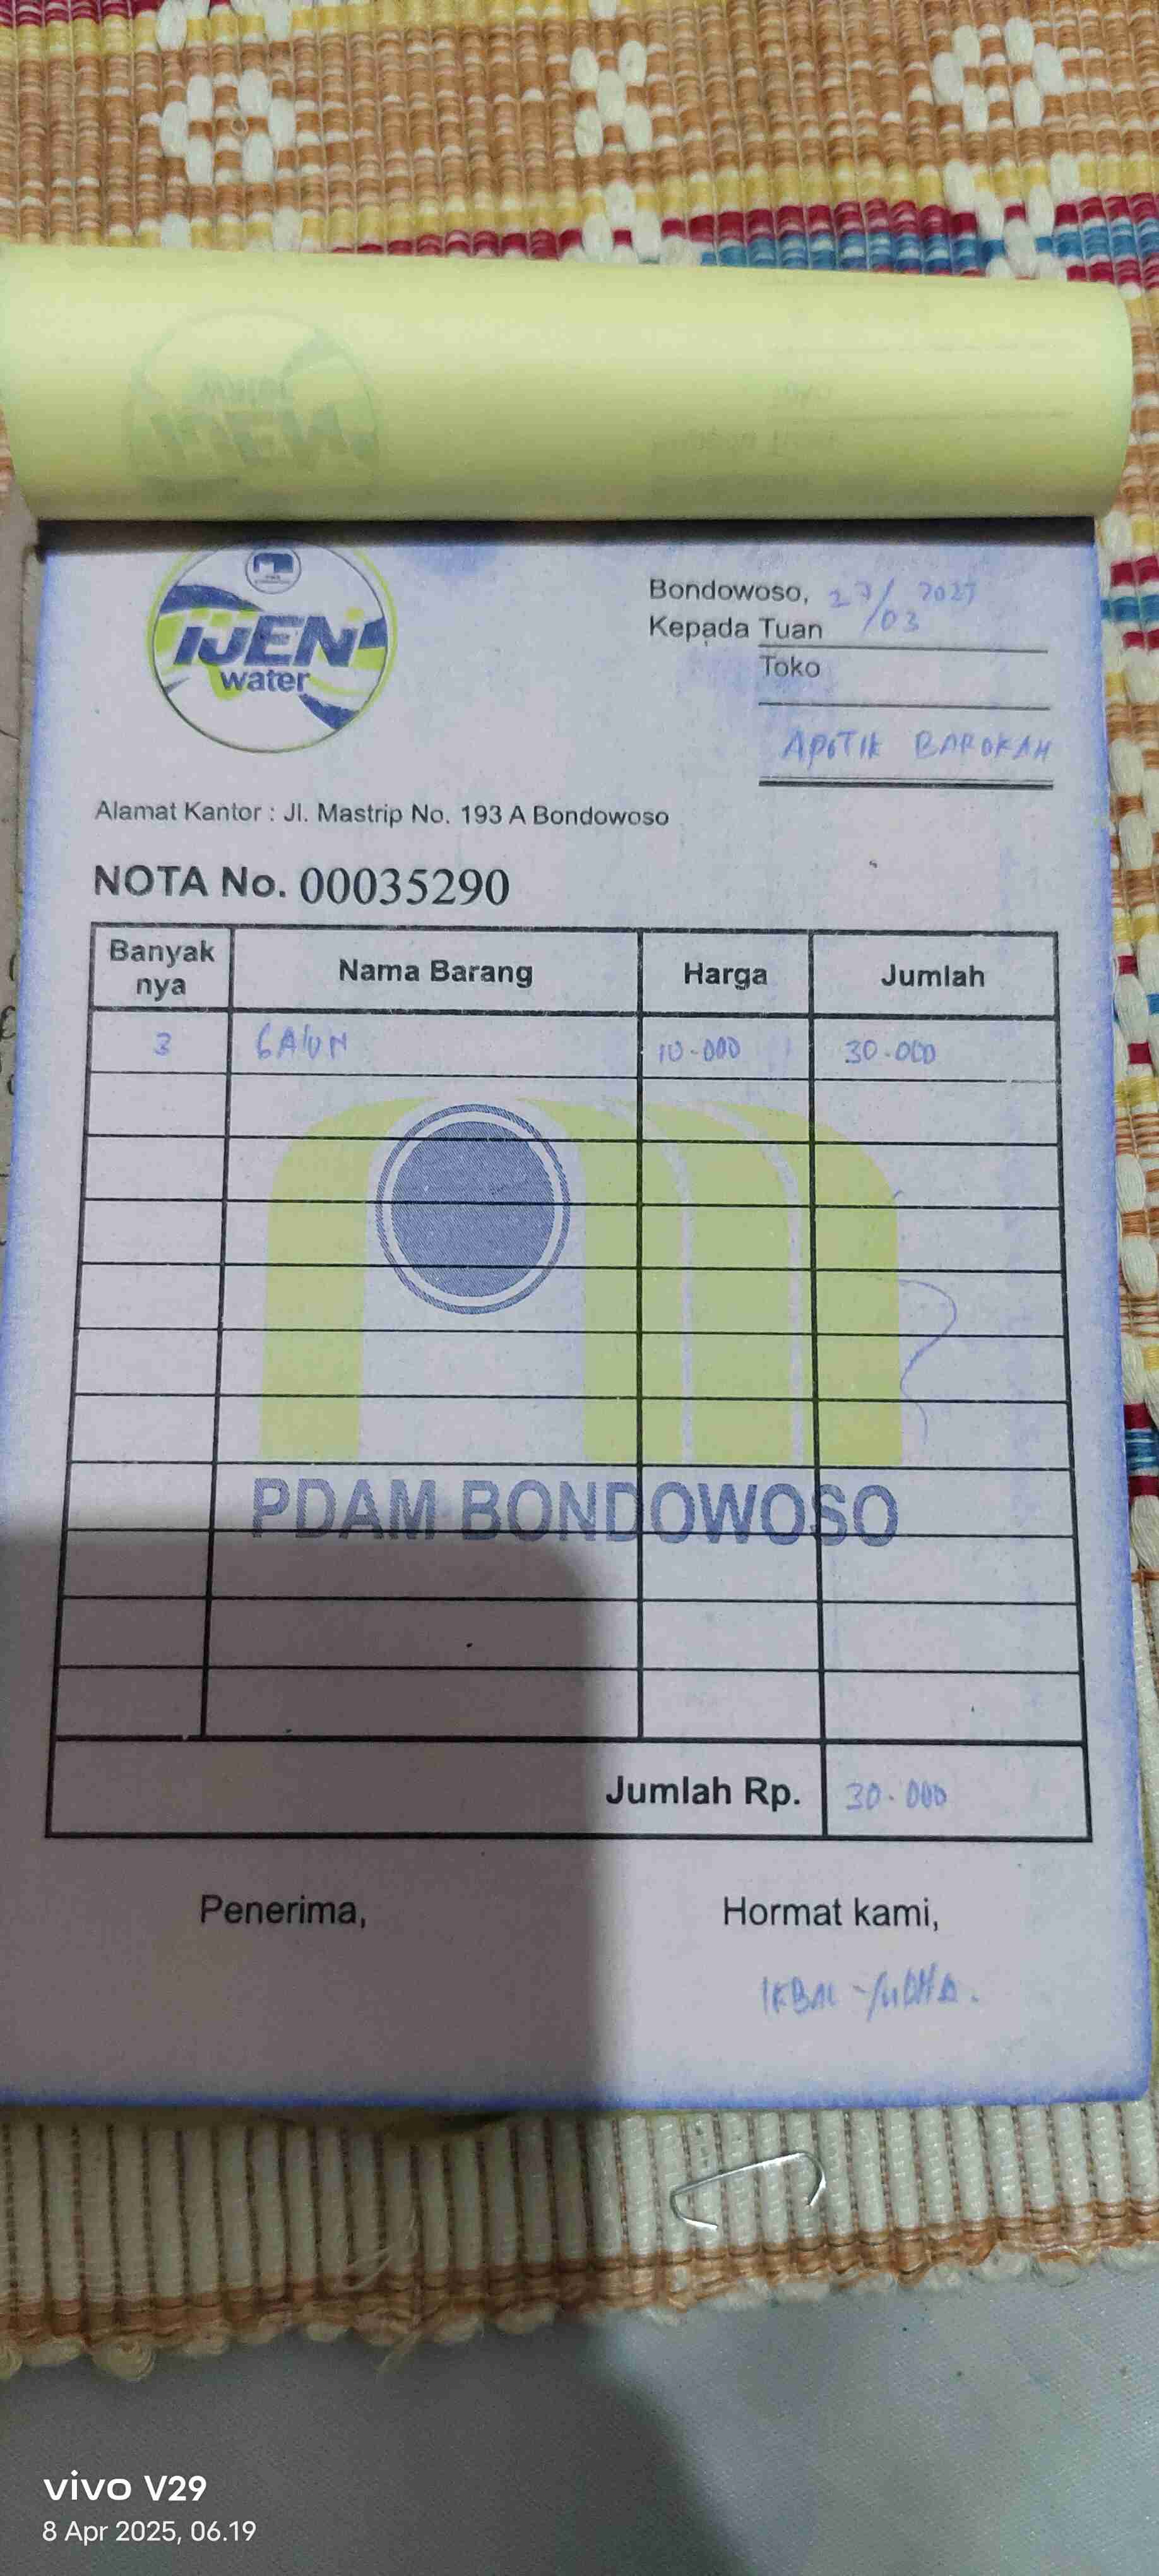 IJEN
water
Bondowoso, 27/03 2025
Kepada Tuan
Toko
APOTIK BAROKAH
Alamat Kantor : Jl. Mastrip No. 193 A Bondowoso
NOTA No. 00035290
Banyak nya Nama Barang Harga Jumlah
3 GALON 10.000 30.000
PDAM BONDOWOSO
Jumlah Rp. 30.000
Penerima, Hormat kami,
IKBAL - YUDHA.
vivo V29
8 Apr 2025, 06.19